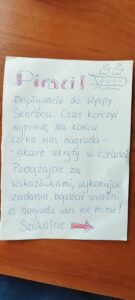 Piraci!
Dopłynęliście do Wyspy
Skarbów. Czas kończyć
wyprawę. Na końcu
czeka was nagroda -
- skarb ukryty w czeluści
Podążajcie za
wskazówkami, wykonujcie
zadania, bądźcie uważni
a nagroda was nie minie!
Szukajcie